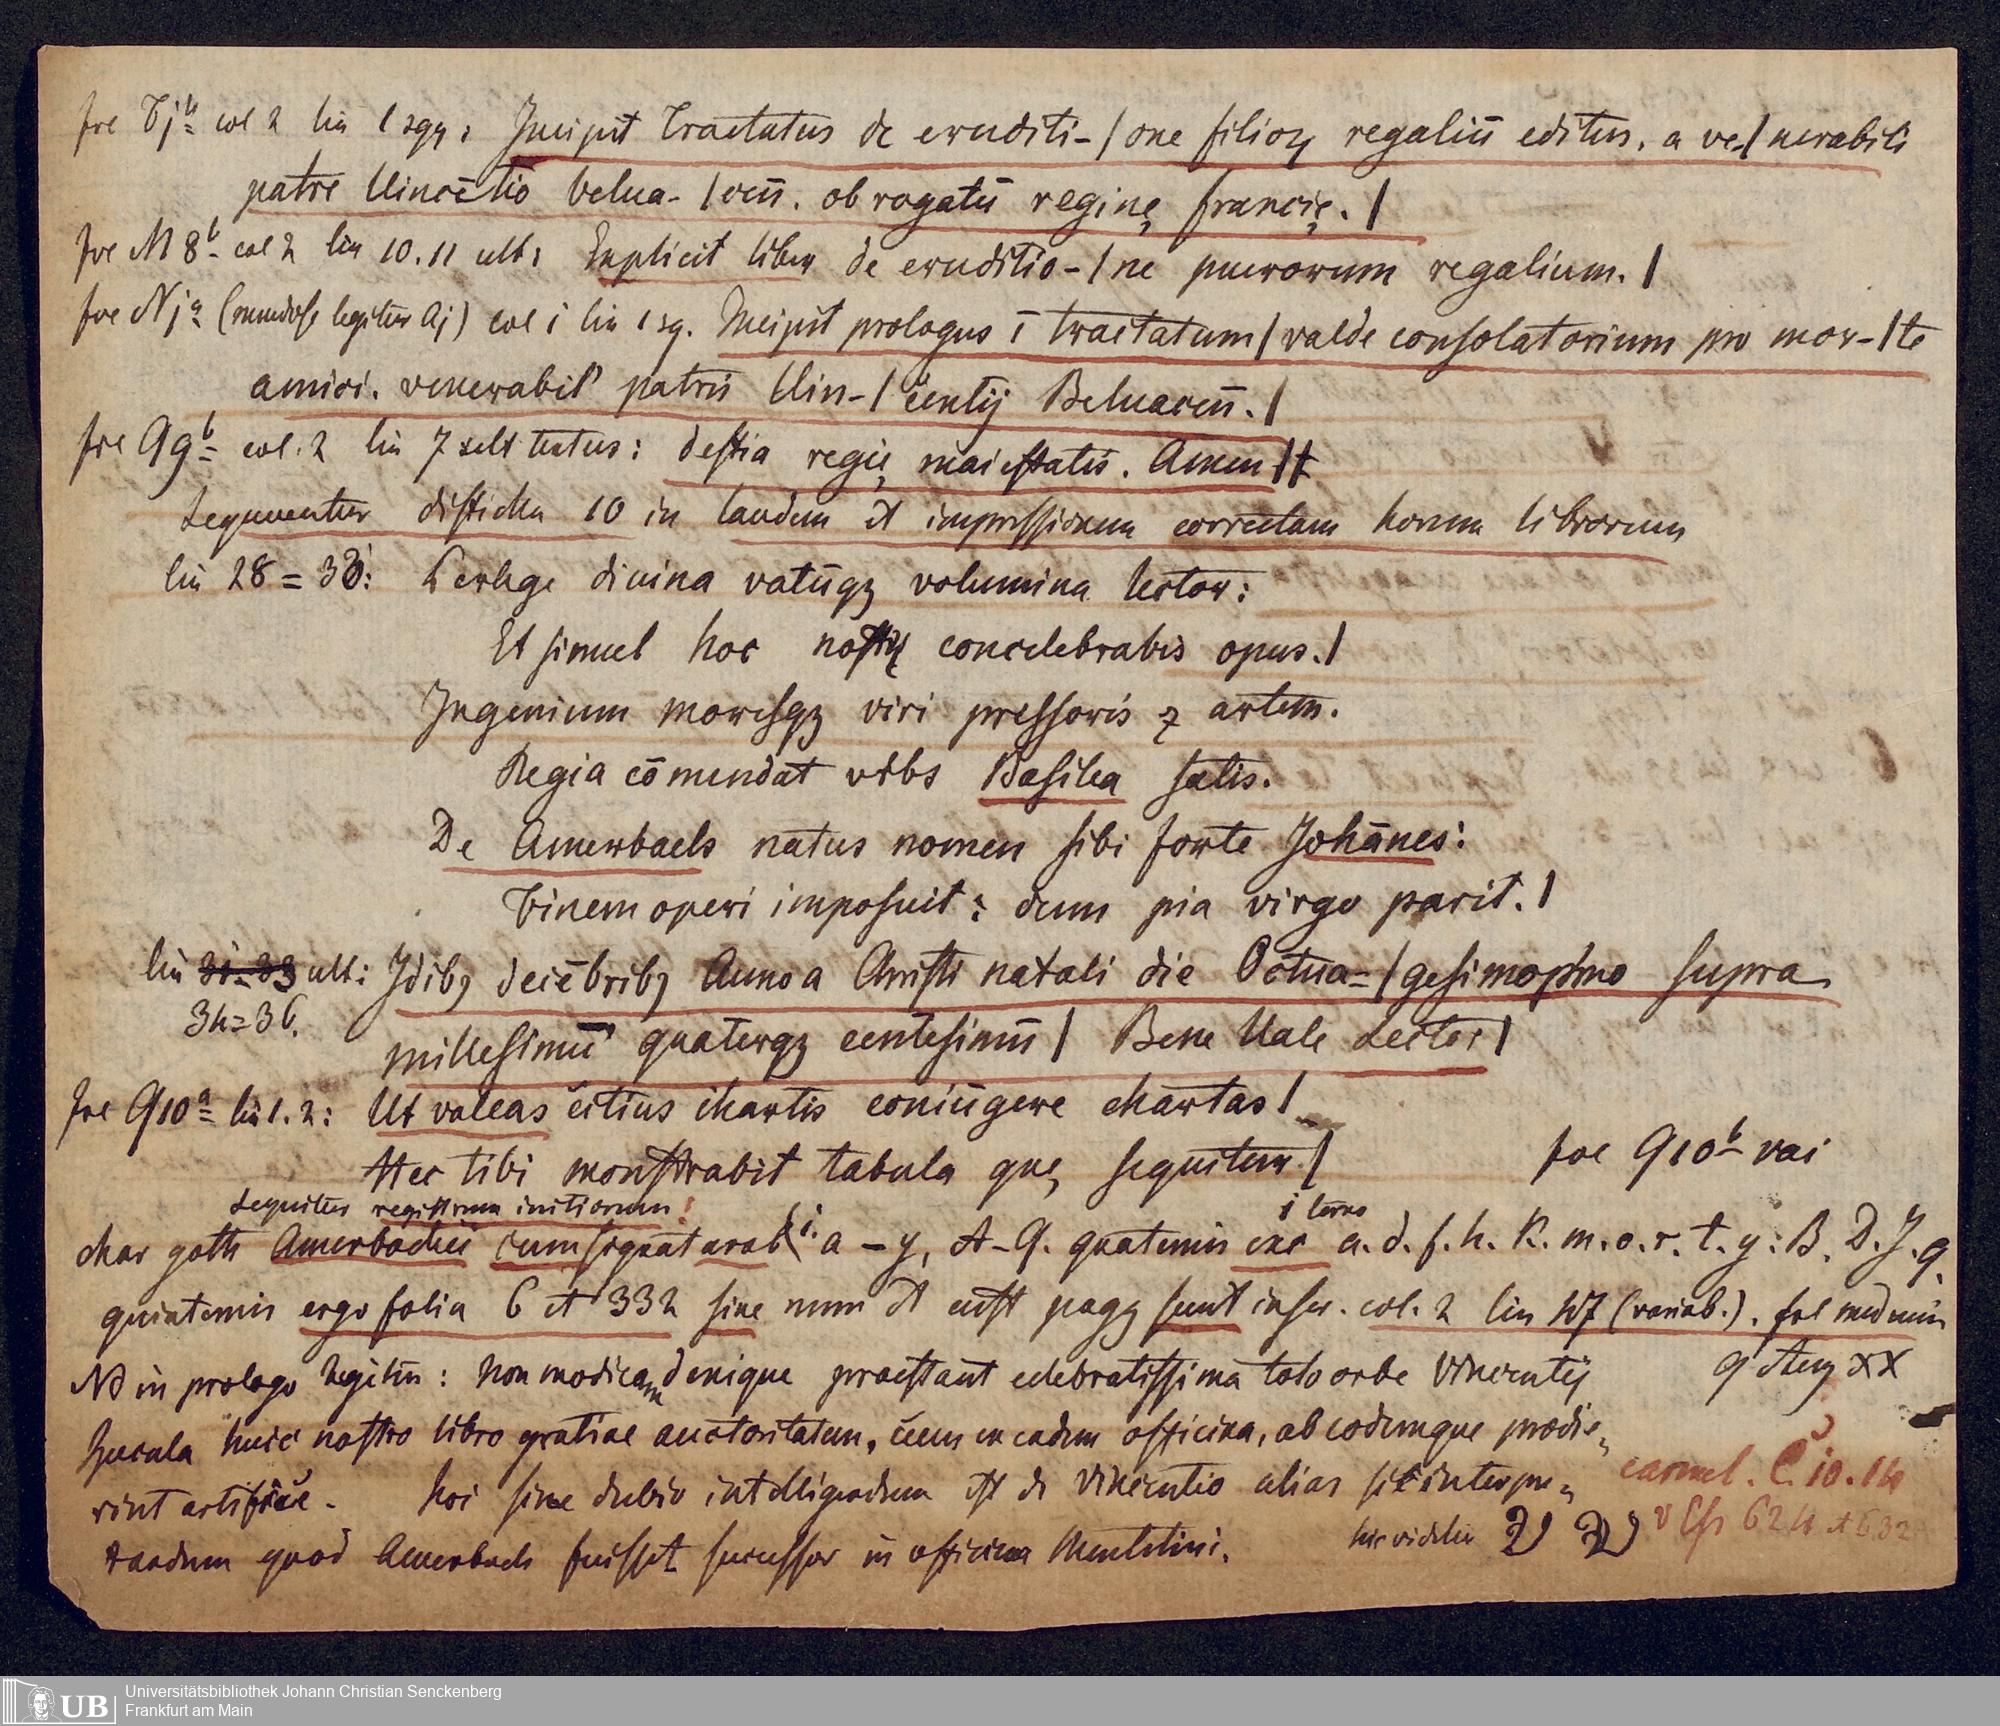 fve Tjb col 2 lin 1 sqq: Incipit Tractatus de eruditi-/one filioꝝ regaliū editus. a ve-/nerabili
patre Uincētio belua-/cēn. ob rogatū reginę francię./
fve M 8b col 2 lin 10.11 ult: Explicit liber de eruditio-/ne puerorum regalium./
fve Nja (mendose legitur Aj) col i lin 1 sq. Incipit prologus ī tractatum/valde consolatorium pro mor-/te
amici. venerabil' patris Uin-/centij Beluaceñ./
fve Q9b col. 2 lin 7 textus: destia regię maiestatis. Amen//
Sequuntur disticha 10 in laudem et impressionem correctam horum librorum
lin 28 = 33: Perlege diuina vatūqꝫ volumina lector:
Et simul hoc nostrū concelebrabis opus./
Ingenium moresqꝫ viri pressoris ⁊ artem.
Regia cōmendat vrbs Basilea satis.
De Amerbach natus nomen sibi forte Johānes:
Finem operi imposuit: dum pia virgo parit./
lin 31-33 ult: Idibꝫ decēbribꝫ Anno a Christi natali die Octua=/gesimoprimo supra
34=36. millesimū quaterqꝫ centesimū/ Bene Uale Lector/
fve Q10a lin 1.2: Ut valeas citius chartis coniūgere chartas/
Hec tibi monstrabit tabula quę sequitur./ fve Q10b vac
sequitur registrum initiorum!
char goth Amerbachii cum signat arab i. a – y, A–Q. quaternis exc i terno a. d. f. h. k. m. o. r. t. y. B. D. J. q.
quinternis ergo folia 6 et 332 sine num et cust pagg sunt inscr. col. 2 lin 47 (variab.). fol med min
NB in prologo legitur: non modicam denique praestant celebratissima toto orbe Vincentij 9 Aug XX
Specula huic nostro libro gratiae auctoritatem, cum ex eadem officina, ab eodemque prodie=
rint artifice. hoc sine dubio intelligendum est de Vincentio alias sic interpre=
tandum quod Amerbach fuisset successor in officina Mentelini. hic videtur
carmel. C. 10. 14
v Ess 624 et 632